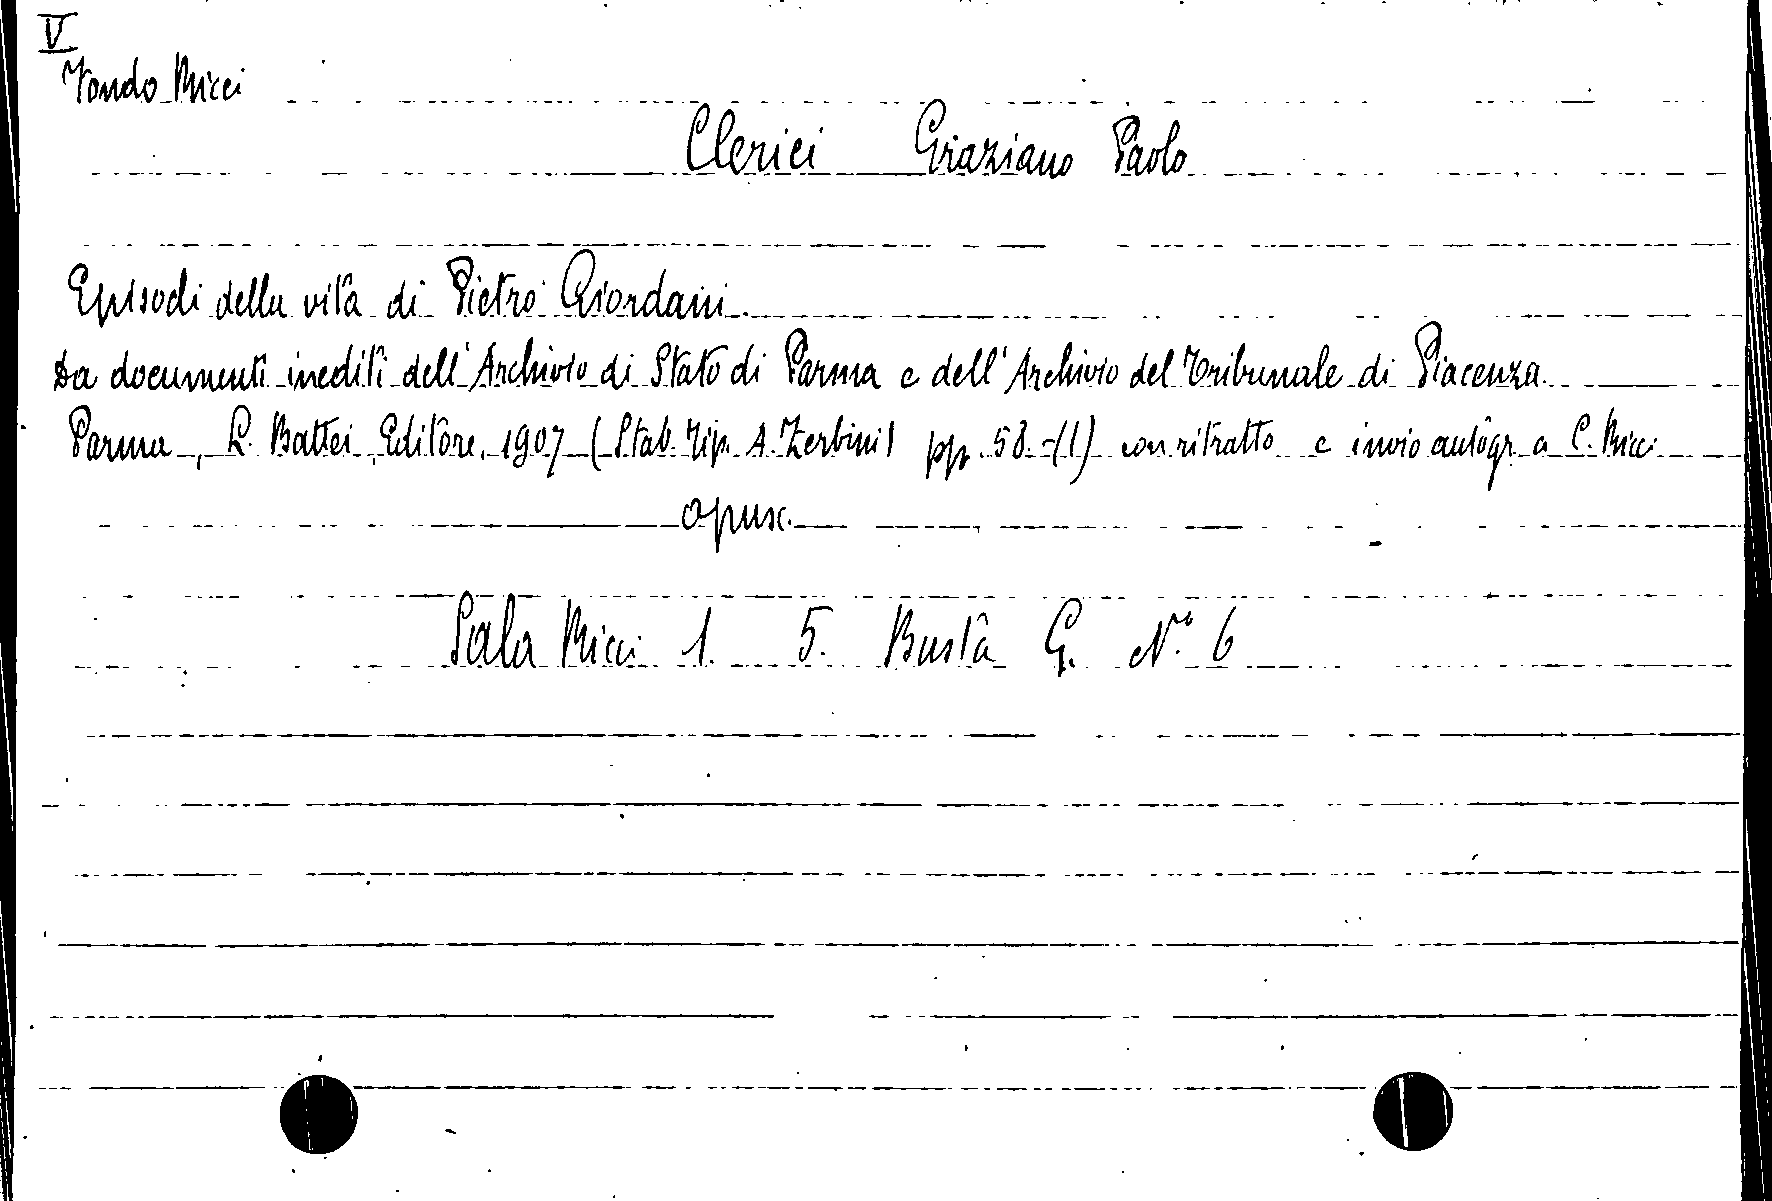 V
Fondo Ricci
Clerici Graziano Paolo
Episodi della vita di Pietro Giordani.
Da documenti inediti dell'Archivio di Stato di Parma e dell'Archivio del Tribunale di Piacenza.
Parma, L. Battei, Editore, 1907 (Stab. Tip. A. Zerbini) pp. 58.-(1) con ritratto e invio autogr. a C. Ricci
opusc.
Sala Ricci 1. 5. Busta G. N° 6